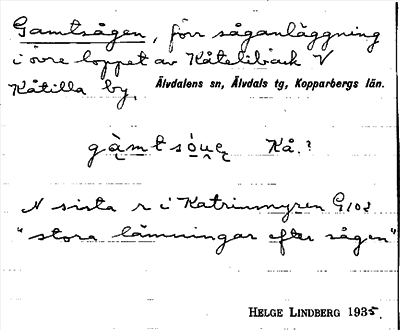 Gamtsågen, förr såganläggning
i övre loppet av Kåtelibäck V
Kåtilla by.
Älvdalens sn, Älvdals tg, Kopparbergs län.
gàmtsó Kå.?
N sista r i Katrinmyren G108
"stora lämningar efter sågen"
HELGE LINDBERG 1935.